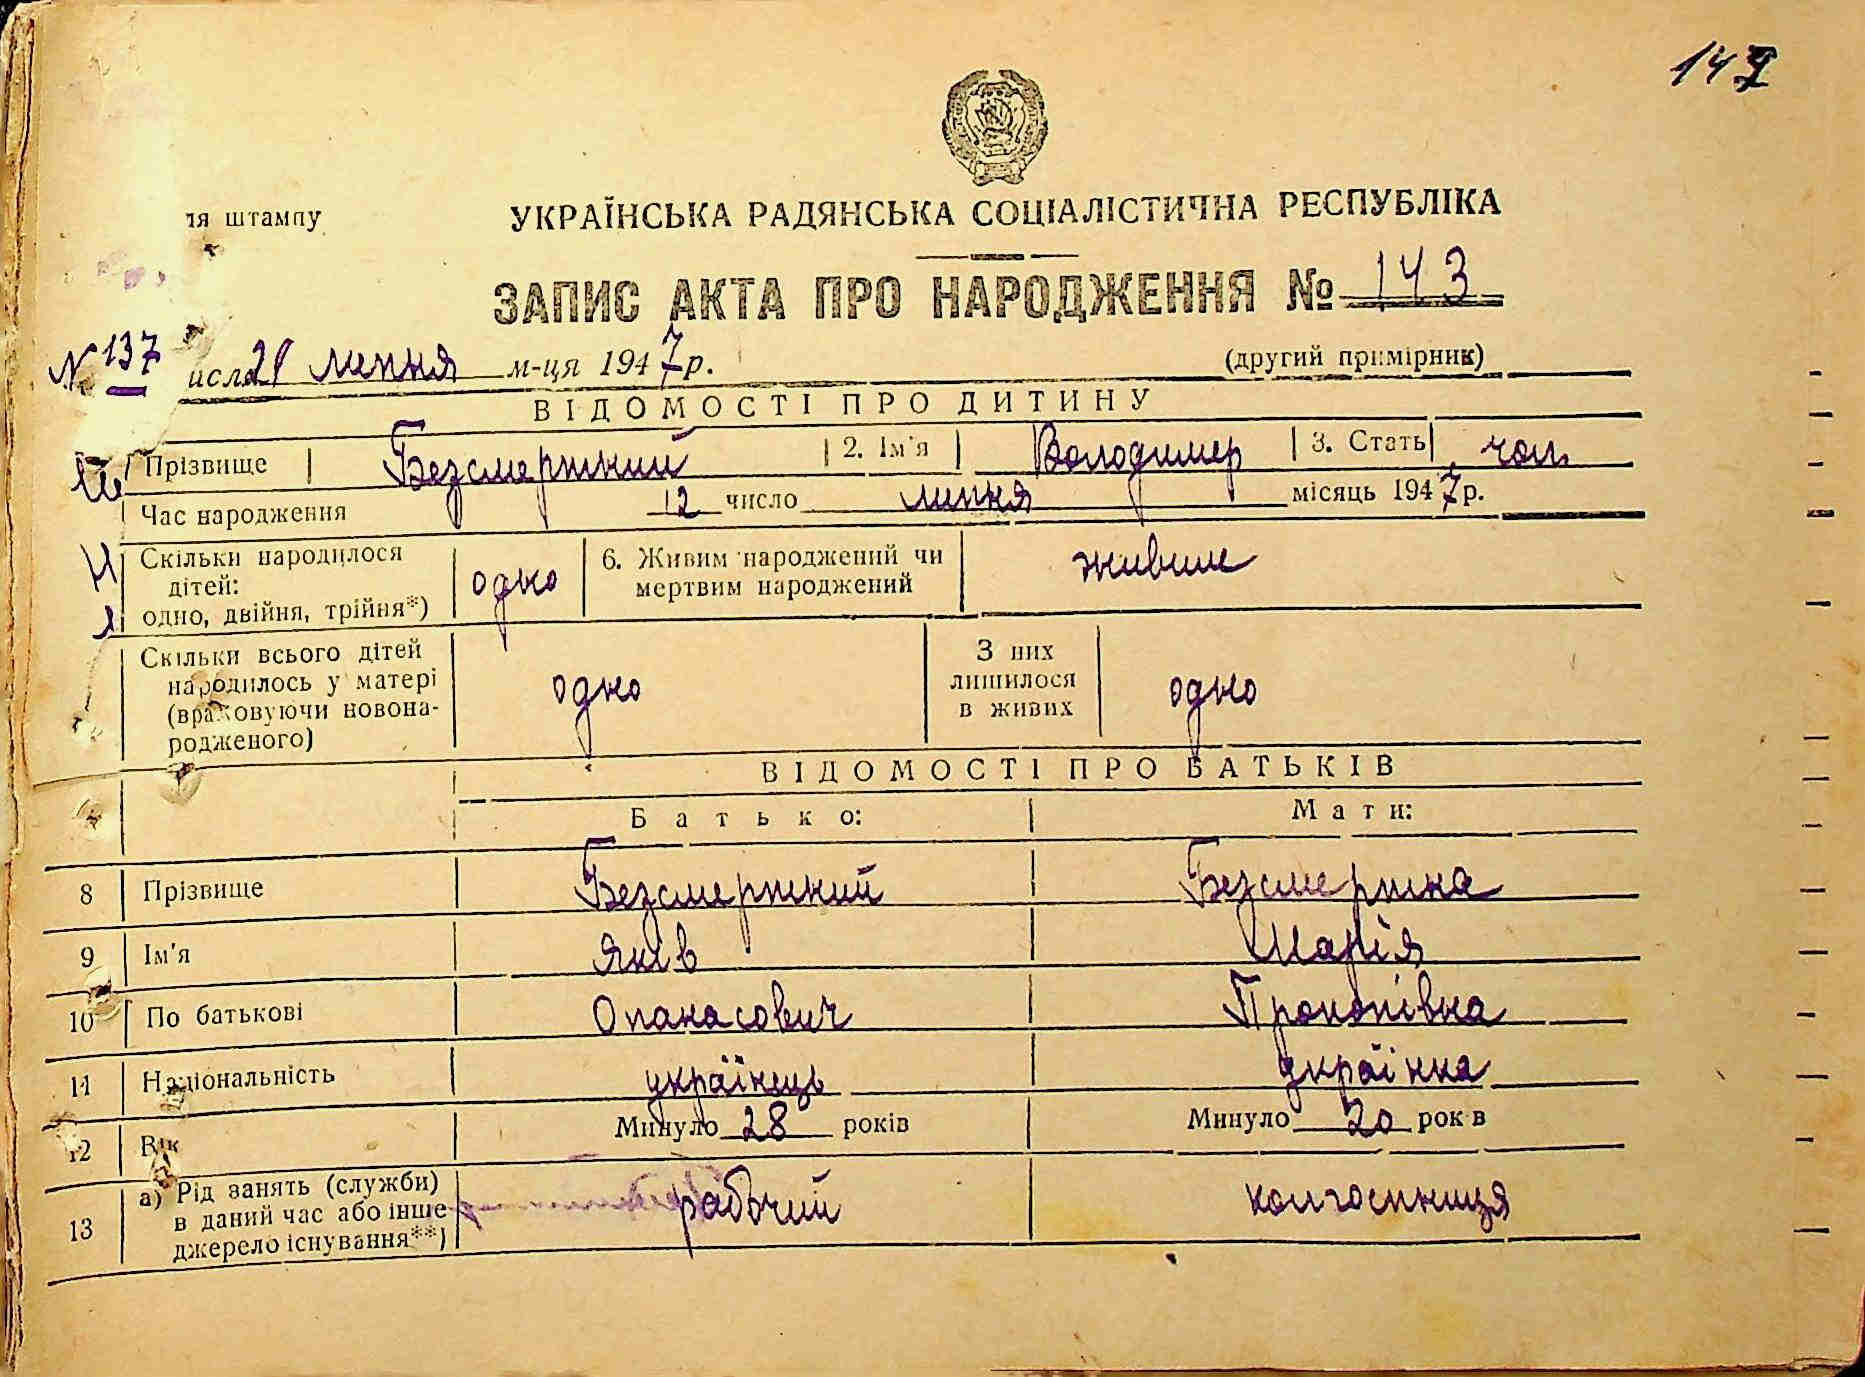 147
ля штампу
УКРАЇНСЬКА РАДЯНСЬКА СОЦІАЛІСТИЧНА РЕСПУБЛІКА
ЗАПИС АКТА ПРО НАРОДЖЕННЯ № 143
№ 137
исла 21 липня м-ця 1947 р. (другий примірник)
ВІДОМОСТІ ПРО ДИТИНУ
Прізвище Безсмертний 2. Ім'я Володимер 3. Стать чол.
Час народження 12 число липня місяць 1947 р.
Скільки народилося дітей: одно, двійня, трійня*) одно 6. Живим народжений чи мертвим народжений живим
Скільки всього дітей народилось у матері (враховуючи новонародженого) одно З них лишилося в живих одно
ВІДОМОСТІ ПРО БАТЬКІВ
Батько: Мати:
8 Прізвище Безсмертний Безсмертна
9 Ім'я Яків Марія
10 По батькові Опанасович Прокопівна
11 Національність українець українка
12 Вік Минуло 28 років Минуло 20 рок в
13 а) Рід занять (служби) в даний час або інше джерело існування**) рабочий колгоспниця